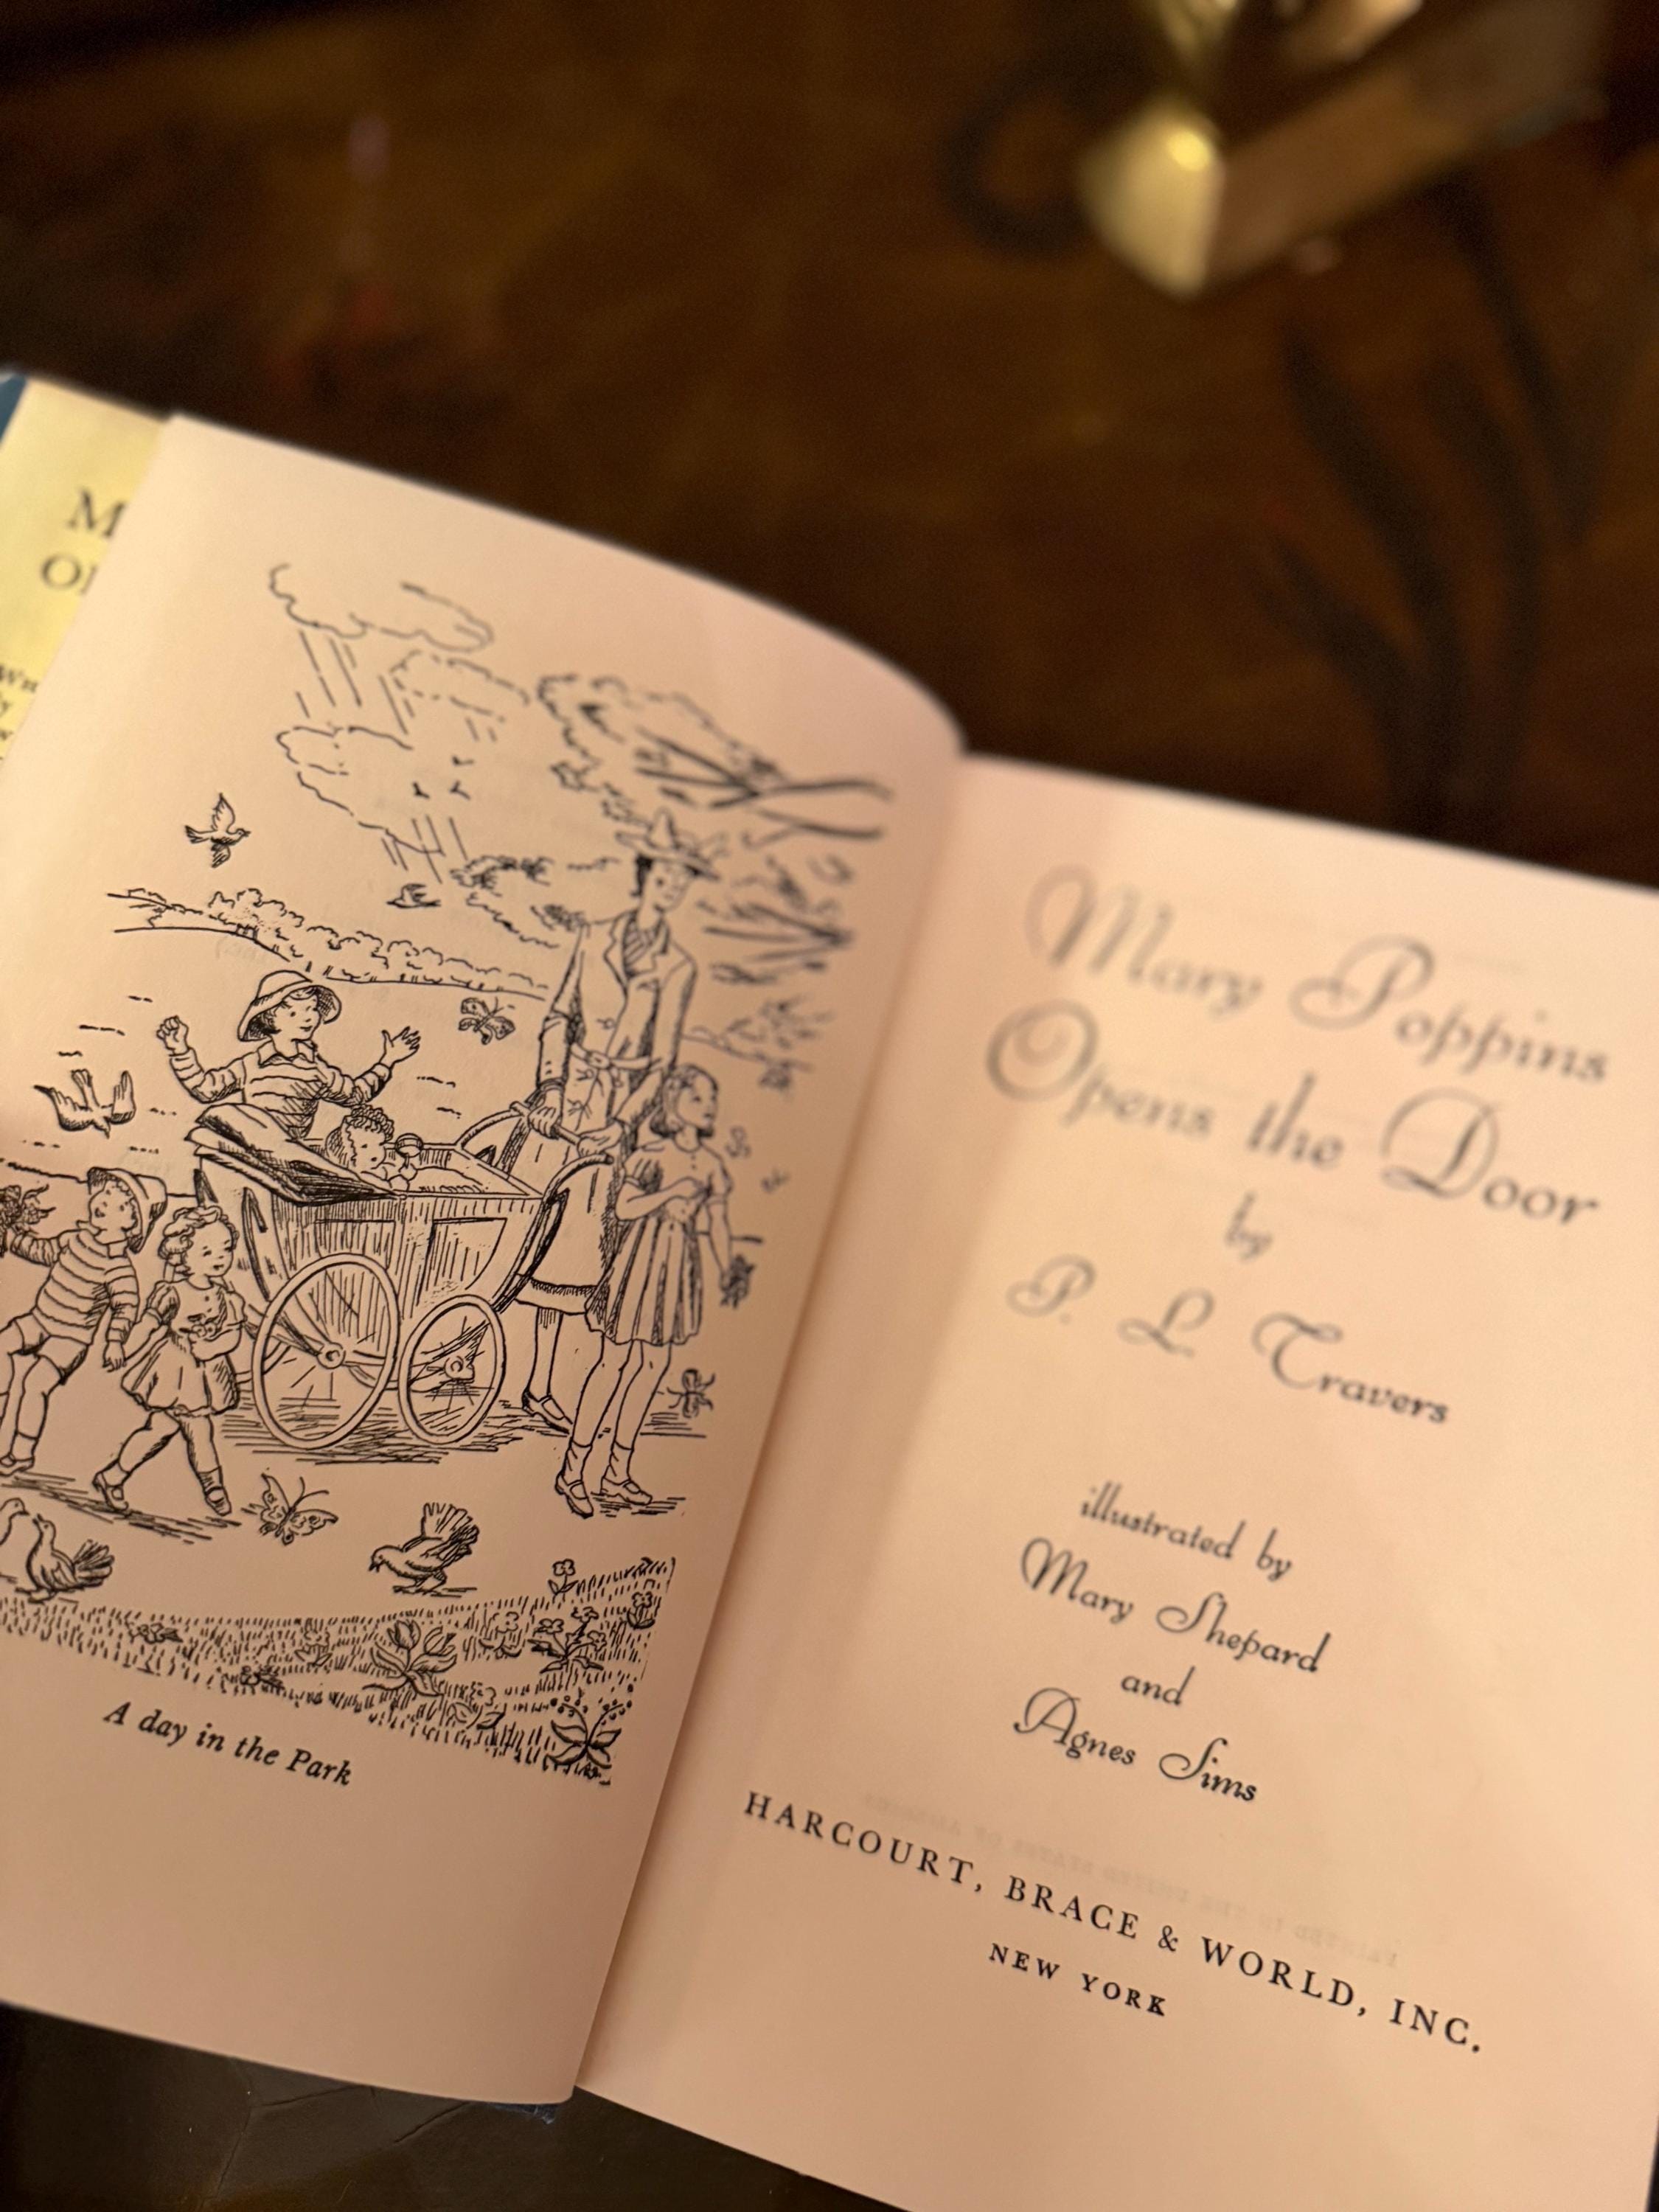 A day in the Park
Mary Poppins
Opens the Door
by
P. L. Travers
illustrated by
Mary Shepard
and
Agnes Sims
HARCOURT, BRACE & WORLD, INC.
NEW YORK